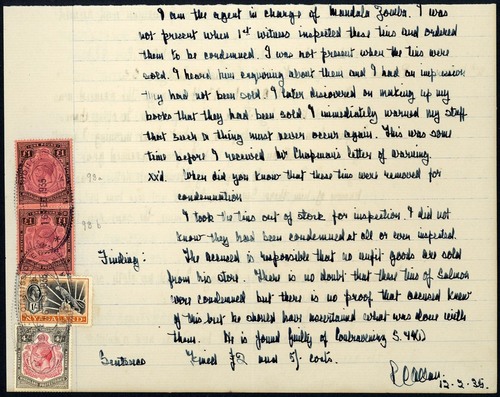 I am the agent in charge of Mandala Zomba. I was
not present when 1st witness inspected these tins and ordered
them to be condemned. I was not present when the tins were
sold. I heard him enquiring about them and I had an impression
they had not been sold. I later discovered on making up my
books that they had been sold. I immediately warned my staff
that such a thing must never occur again. This was some
time before I received Mr Chapman's letter of warning.
xx'd. When did you know that these tins were removed for
condemnation
I took the tins out of store for inspection. I did not
know they had been condemned at all or even inspected.
Finding: The accused is responsible that no unfit goods are sold
from his store. There is no doubt that these tins of Salmon
were condemned but there is no proof that accused knew
of this but he should have ascertained what was done with
them. He is found guilty of Contravening S. 4(1)
Sentence Fined £2 and 5/- costs.
13.2.36.
98a
98b
£1 £1
£1 £1
NYASALAND